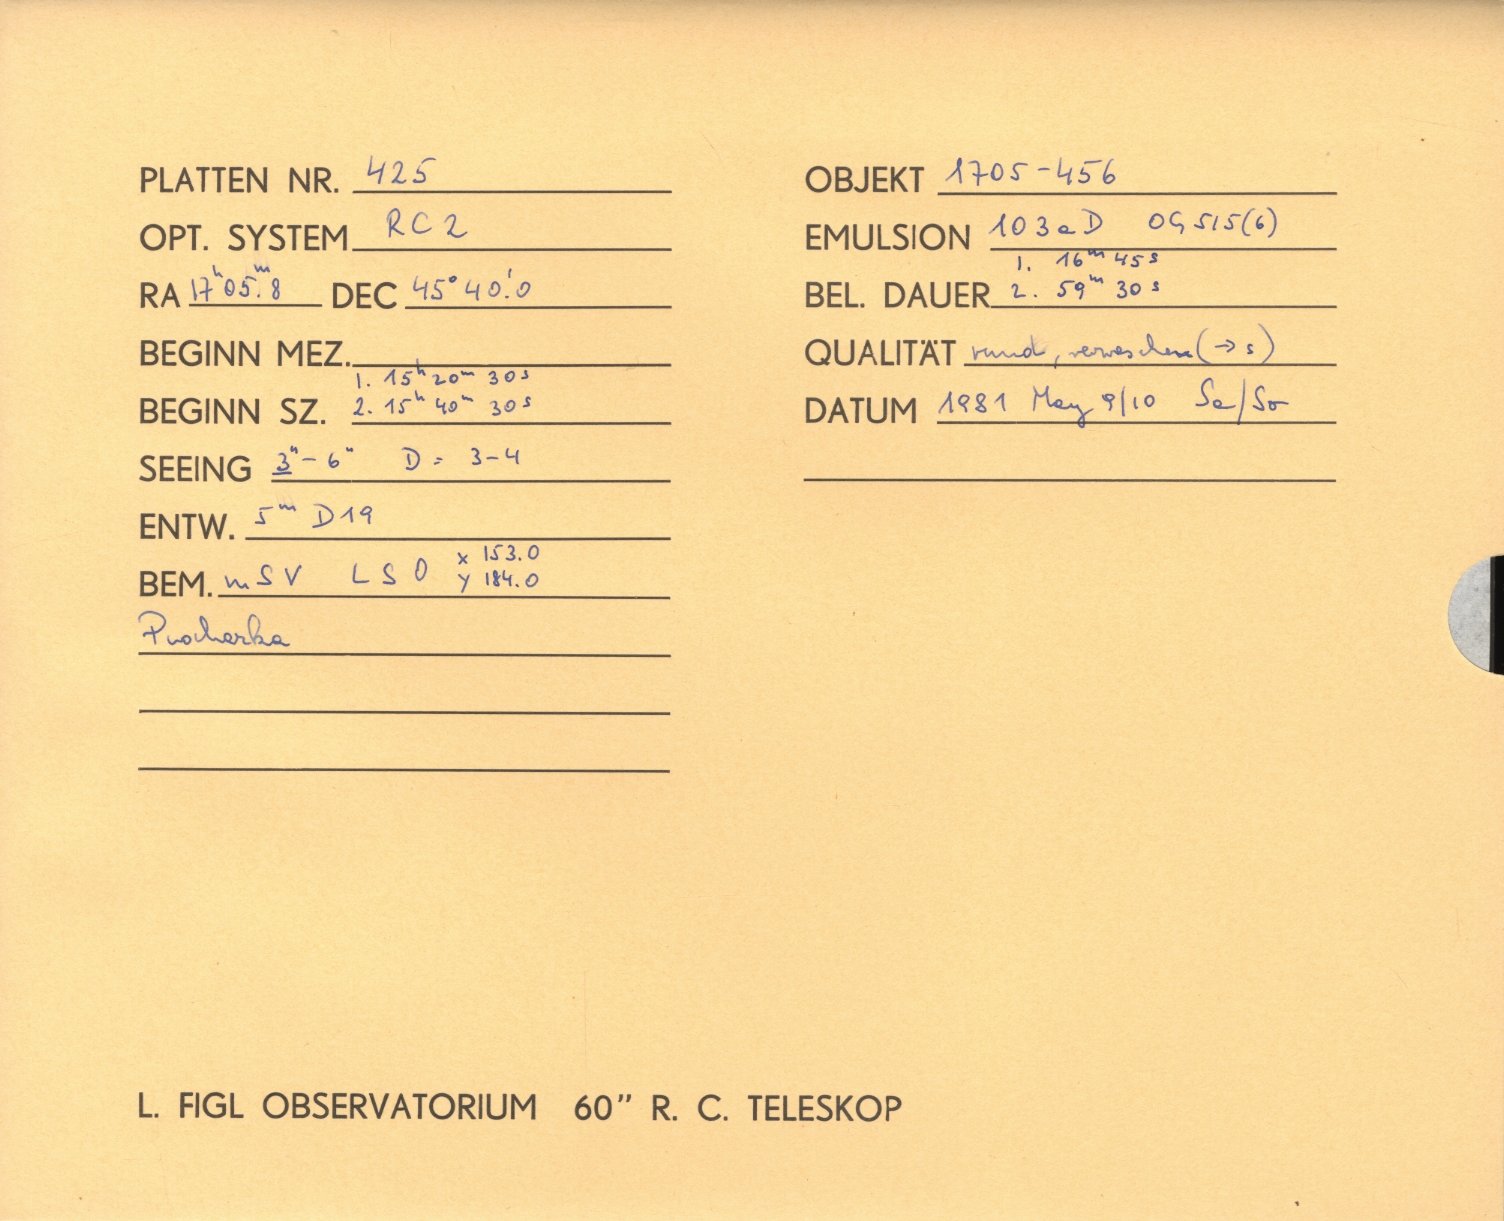 PLATTEN NR. 425
OPT. SYSTEM RC2
RA 17h05m.8 DEC 45°40'.0
BEGINN MEZ.
1. 15h 20m 30s
BEGINN SZ. 2. 15h 40m 30s
SEEING 3"-6" D = 3-4
ENTW. 5m D19
x 153.0
BEM. mSV LSO y 184.0
OBJEKT 1705-456
EMULSION 103aD OG515(6)
1. 16m 45s
BEL. DAUER 2. 59m 30s
QUALITÄT rund, verwaschen (→ s)
DATUM 1981 May 9/10 Sa/So
L. FIGL OBSERVATORIUM 60" R. C. TELESKOP